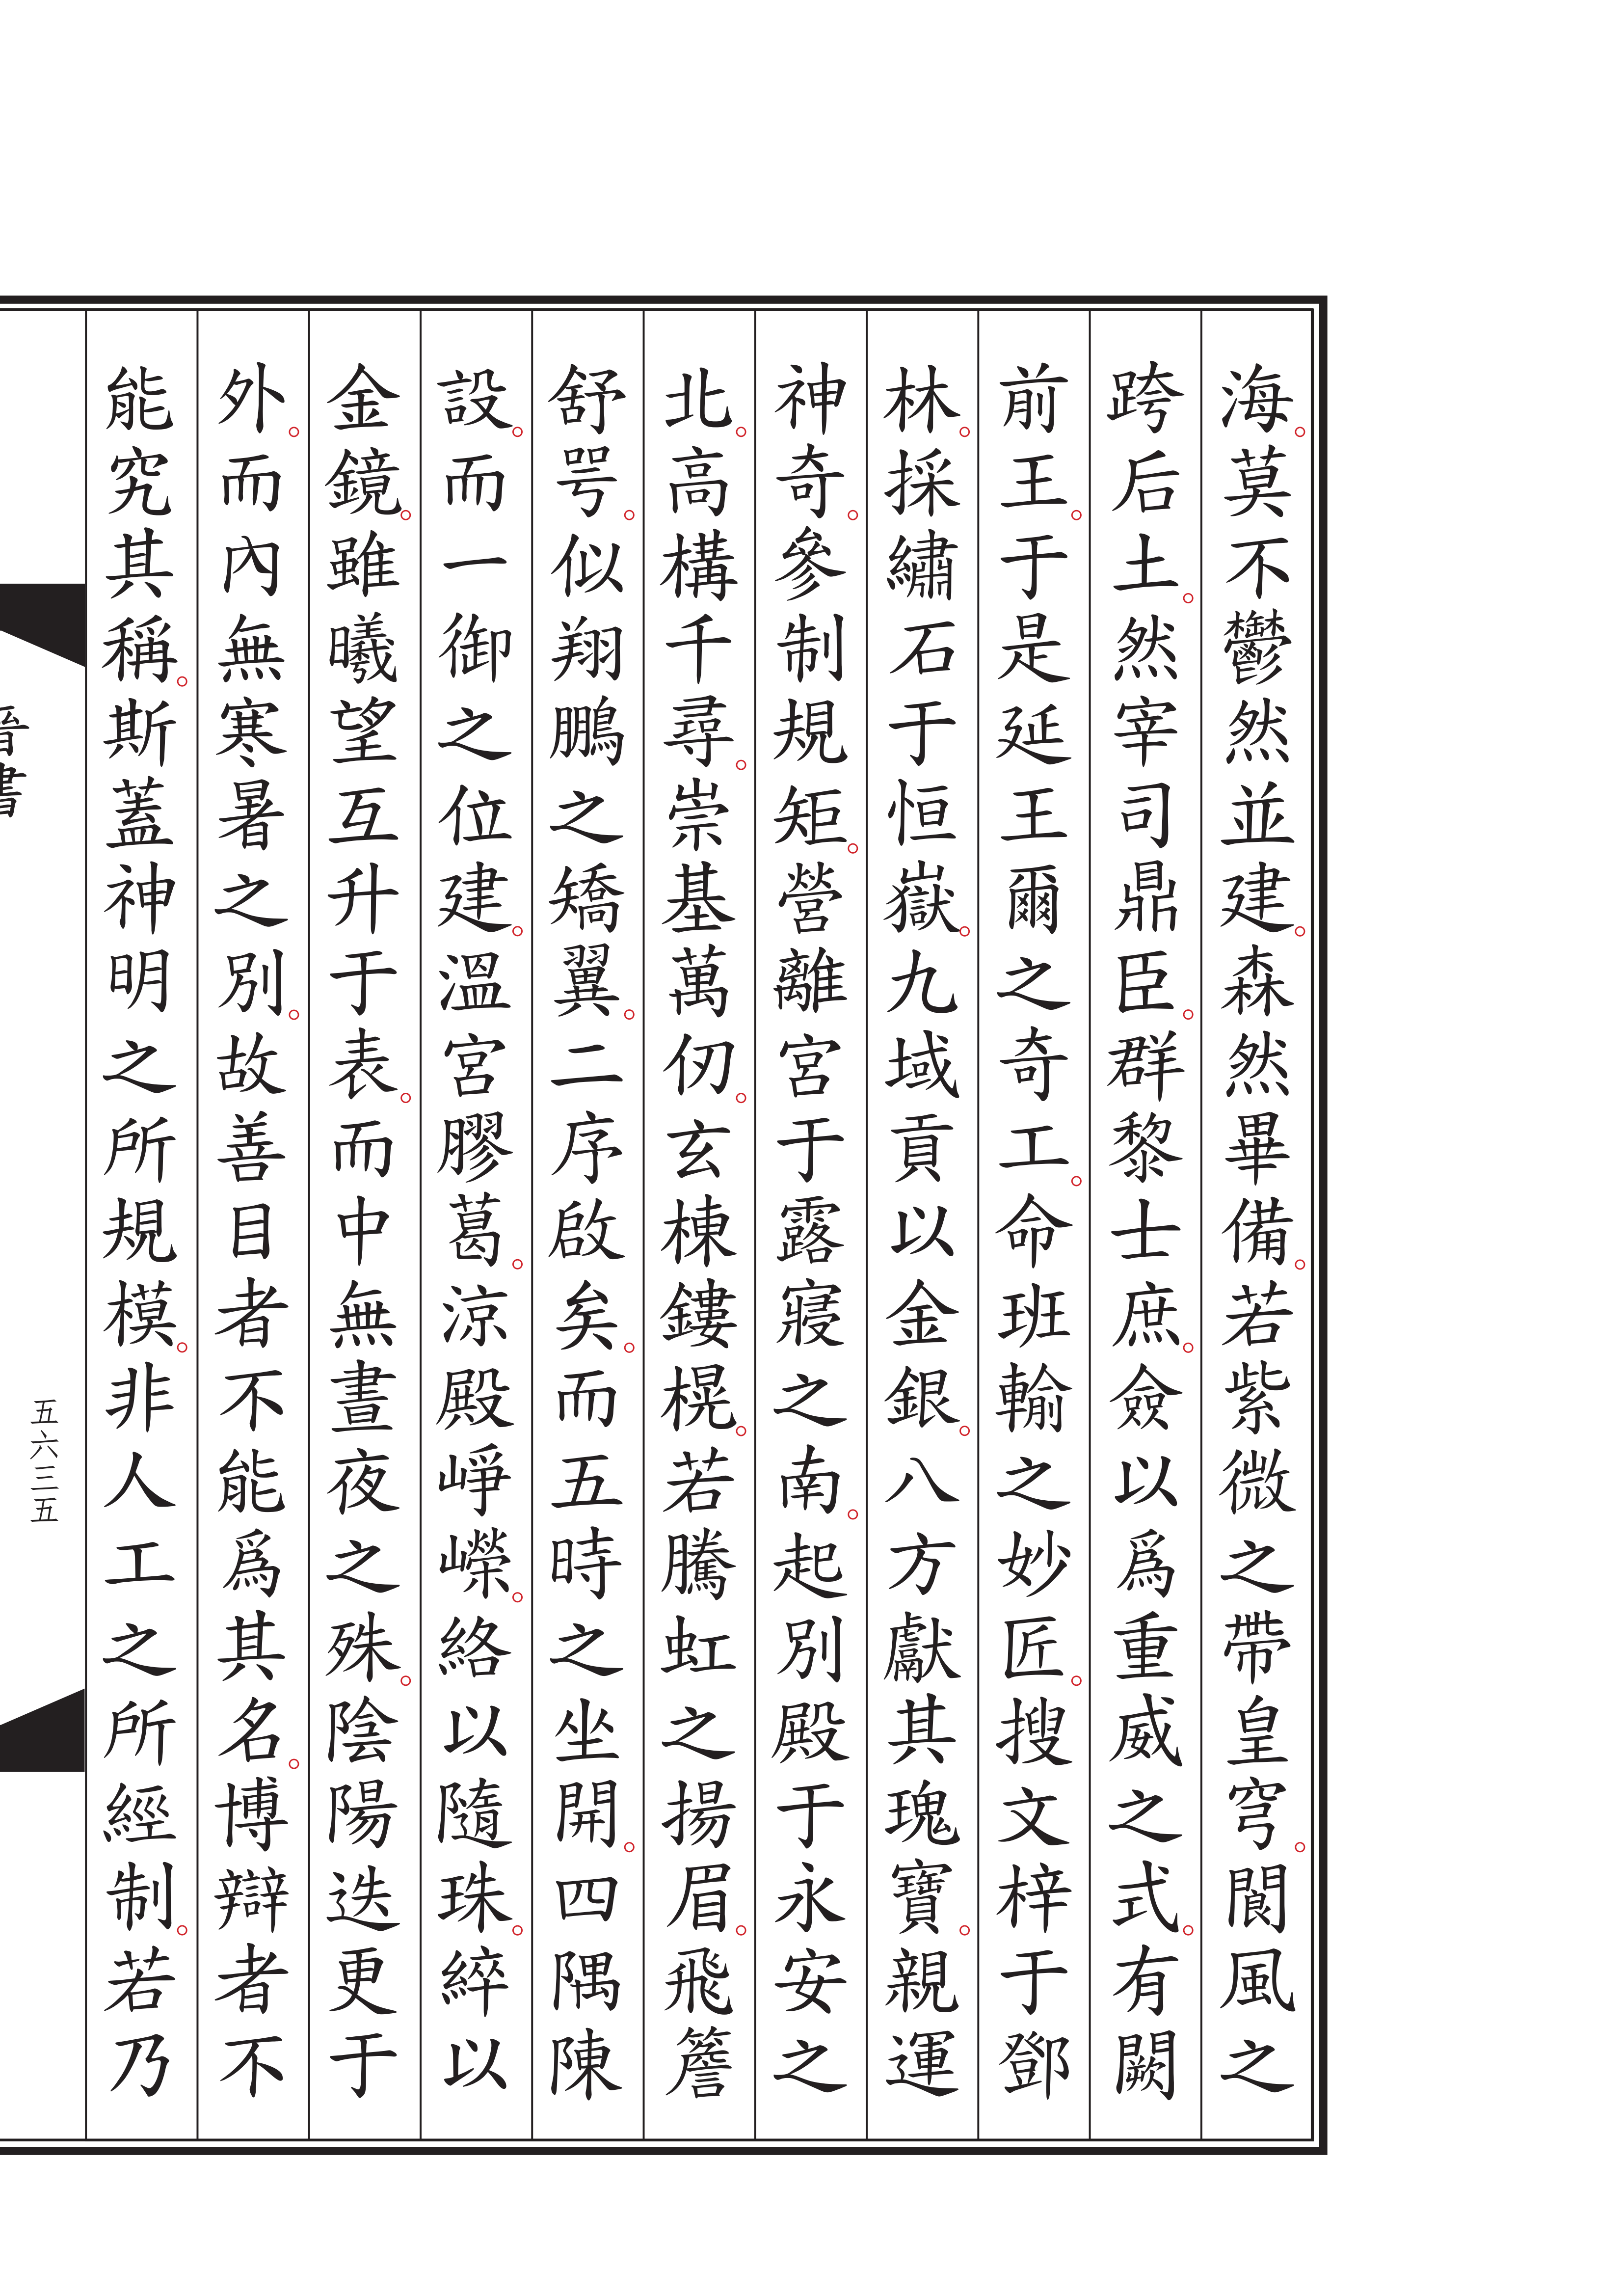 海。莫不鬱然並建。森然畢備。若紫微之帶皇穹。閬風之
跨后土。然宰司鼎臣。群黎士庶。僉以爲重威之式。有闕
前王。于是延王爾之奇工。命班輸之妙匠。搜文梓于鄧
林。採繡石于恒嶽。九域貢以金銀。八方獻其瑰寶。親運
神奇。參制規矩。營離宮于露寢之南。起別殿于永安之
北。高構千尋。崇基萬仞。玄棟鏤榥。若騰虹之揚眉。飛簷
舒咢。似翔鵬之矯翼。二序啟矣。而五時之坐開。四隅陳
設。而一御之位建。溫宮膠葛。涼殿崢嶸。絡以隨珠。綷以
金鏡。雖曦望互升于表。而中無晝夜之殊。陰陽迭更于
外。而內無寒暑之別。故善目者不能爲其名。博辯者不
能究其稱。斯蓋神明之所規模。非人工之所經制。若乃
晉書
五六三五